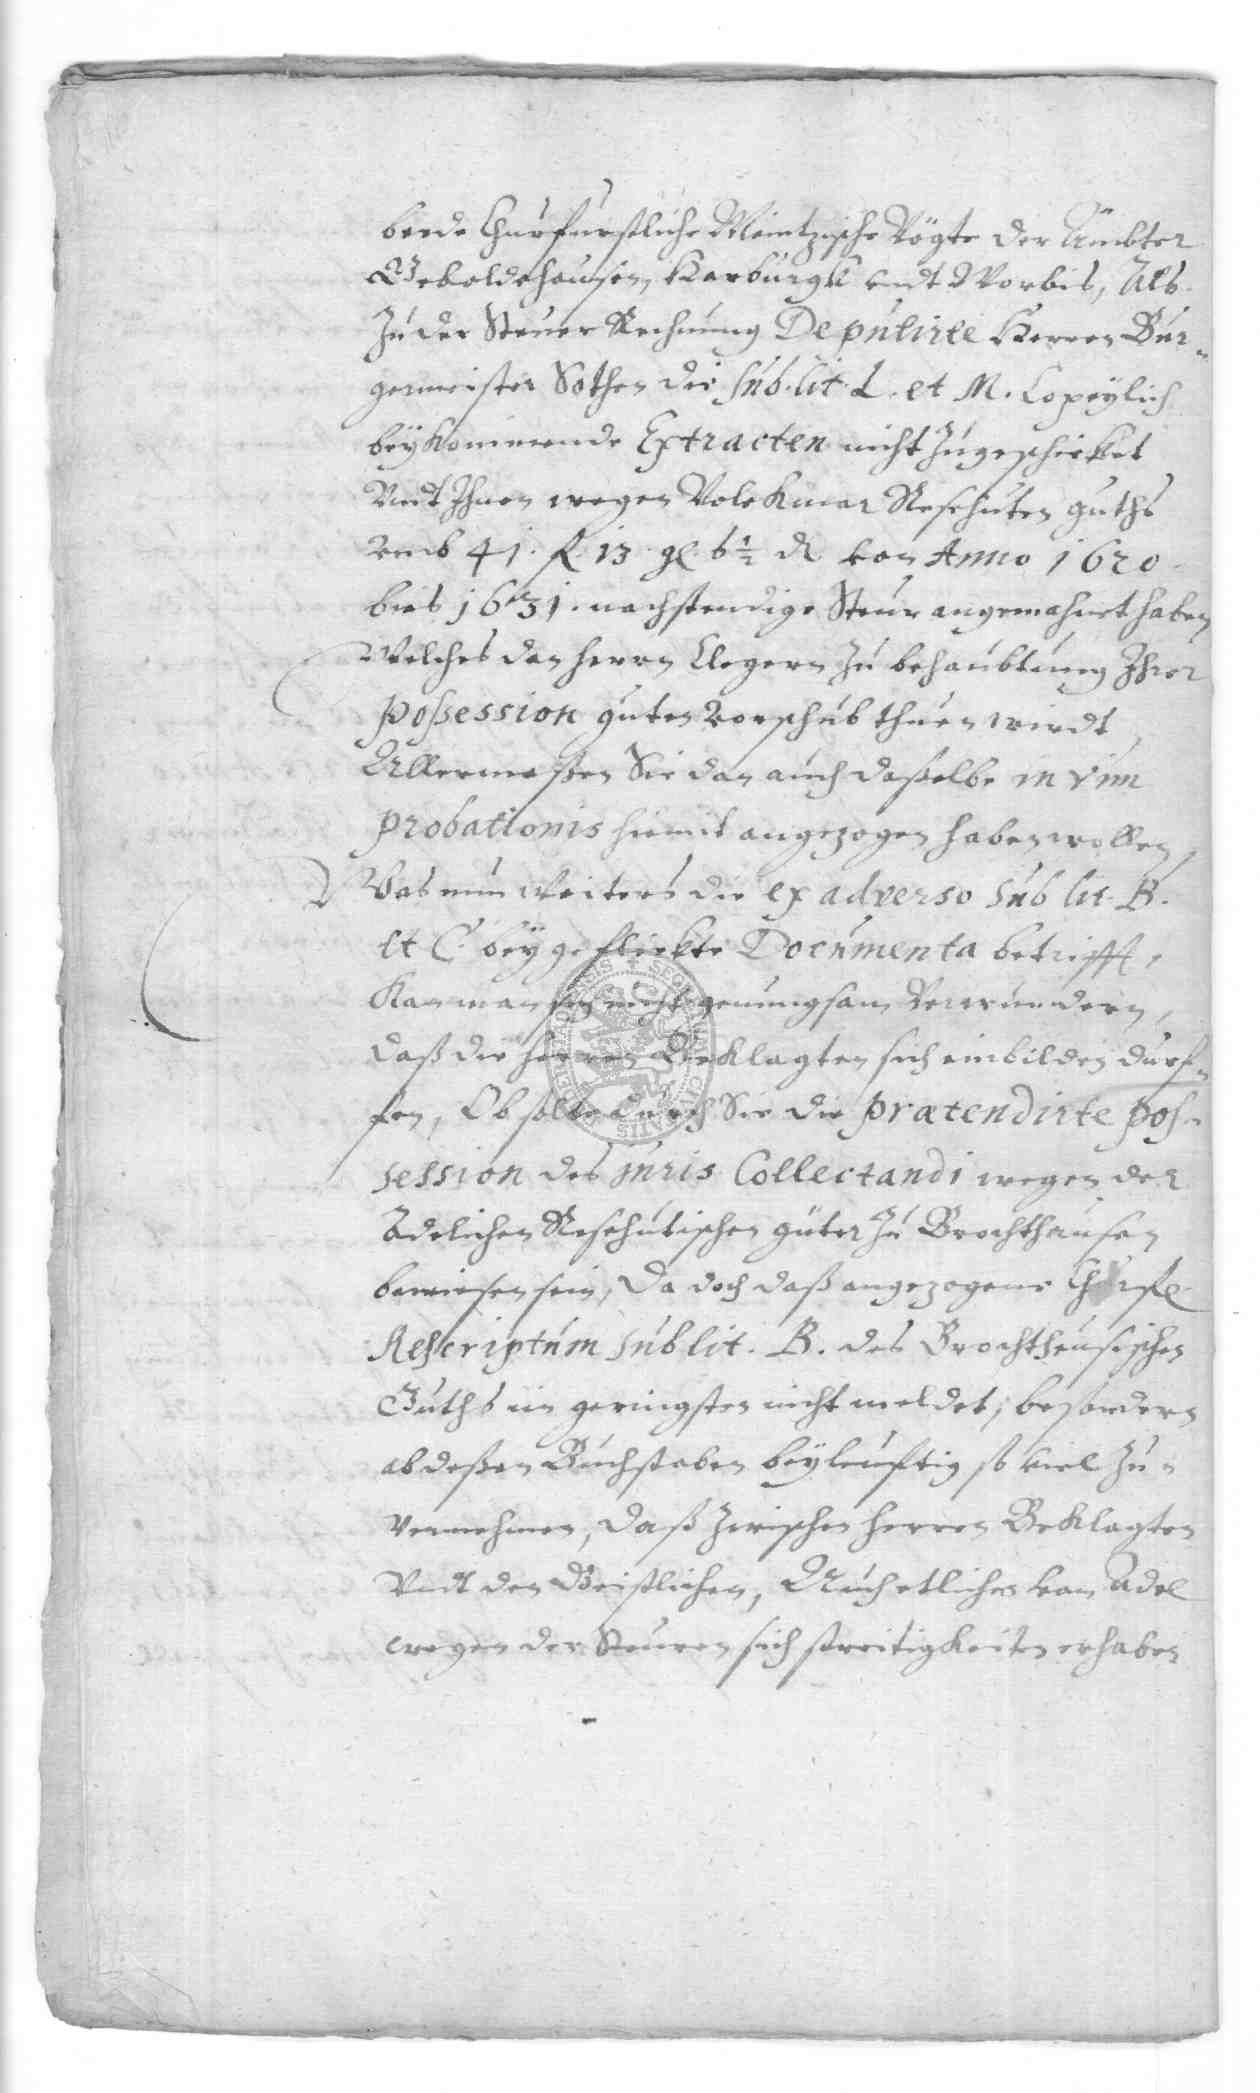 beede Churfürstliche Meintzische Vögte der Ämbter
Gieboldehausen, Harburgk undt Worbis, Als
Zu der Steuer Rechnung Deputirte Herren Bür-
germeister Sothen die sub lit. L. et M. Copeylich
beykommende Extracten nicht zugeschicket
Undt Ihnen wegen Volckmar Reschuten guths
umb 41. fl. 13. gl. 6½ d von Anno 1620
bies 1631. nachstendige Steur angemahnet haben
Welches den herrn Clegern zu behaubtung Ihrer
possession guten vorschub thuen wirdt
Allermaßen Sie dan auch daßelbe in vim
probationis hiemit angezogen haben wollen,
Was nun weiters die ex adverso sub lit. B.
et C. beygeflickte Documenta betrifft,
Kan man sich nicht genungsam verwundern,
daß die herren Beklagten sich einbilden durf-
fen, Ob solte durch Sie die prætendirte pos-
session des juris Collectandi wegen der
Adelichen Reschutischen güter zu Brochthausen
bewiesen sein, Da doch daß angezogene Churfl.
Rescriptum sub lit. B. des Brochtheusischen
Guths im geringsten nicht meldet, besondern
ab deßen Buchstaben beyleuftig so viel zu-
vernehmen, daß zwischen herren Beklagten
Undt den Geistlichen, Auch etliches von Adel
wegen der Steuren sich streitigkeiten erhaben